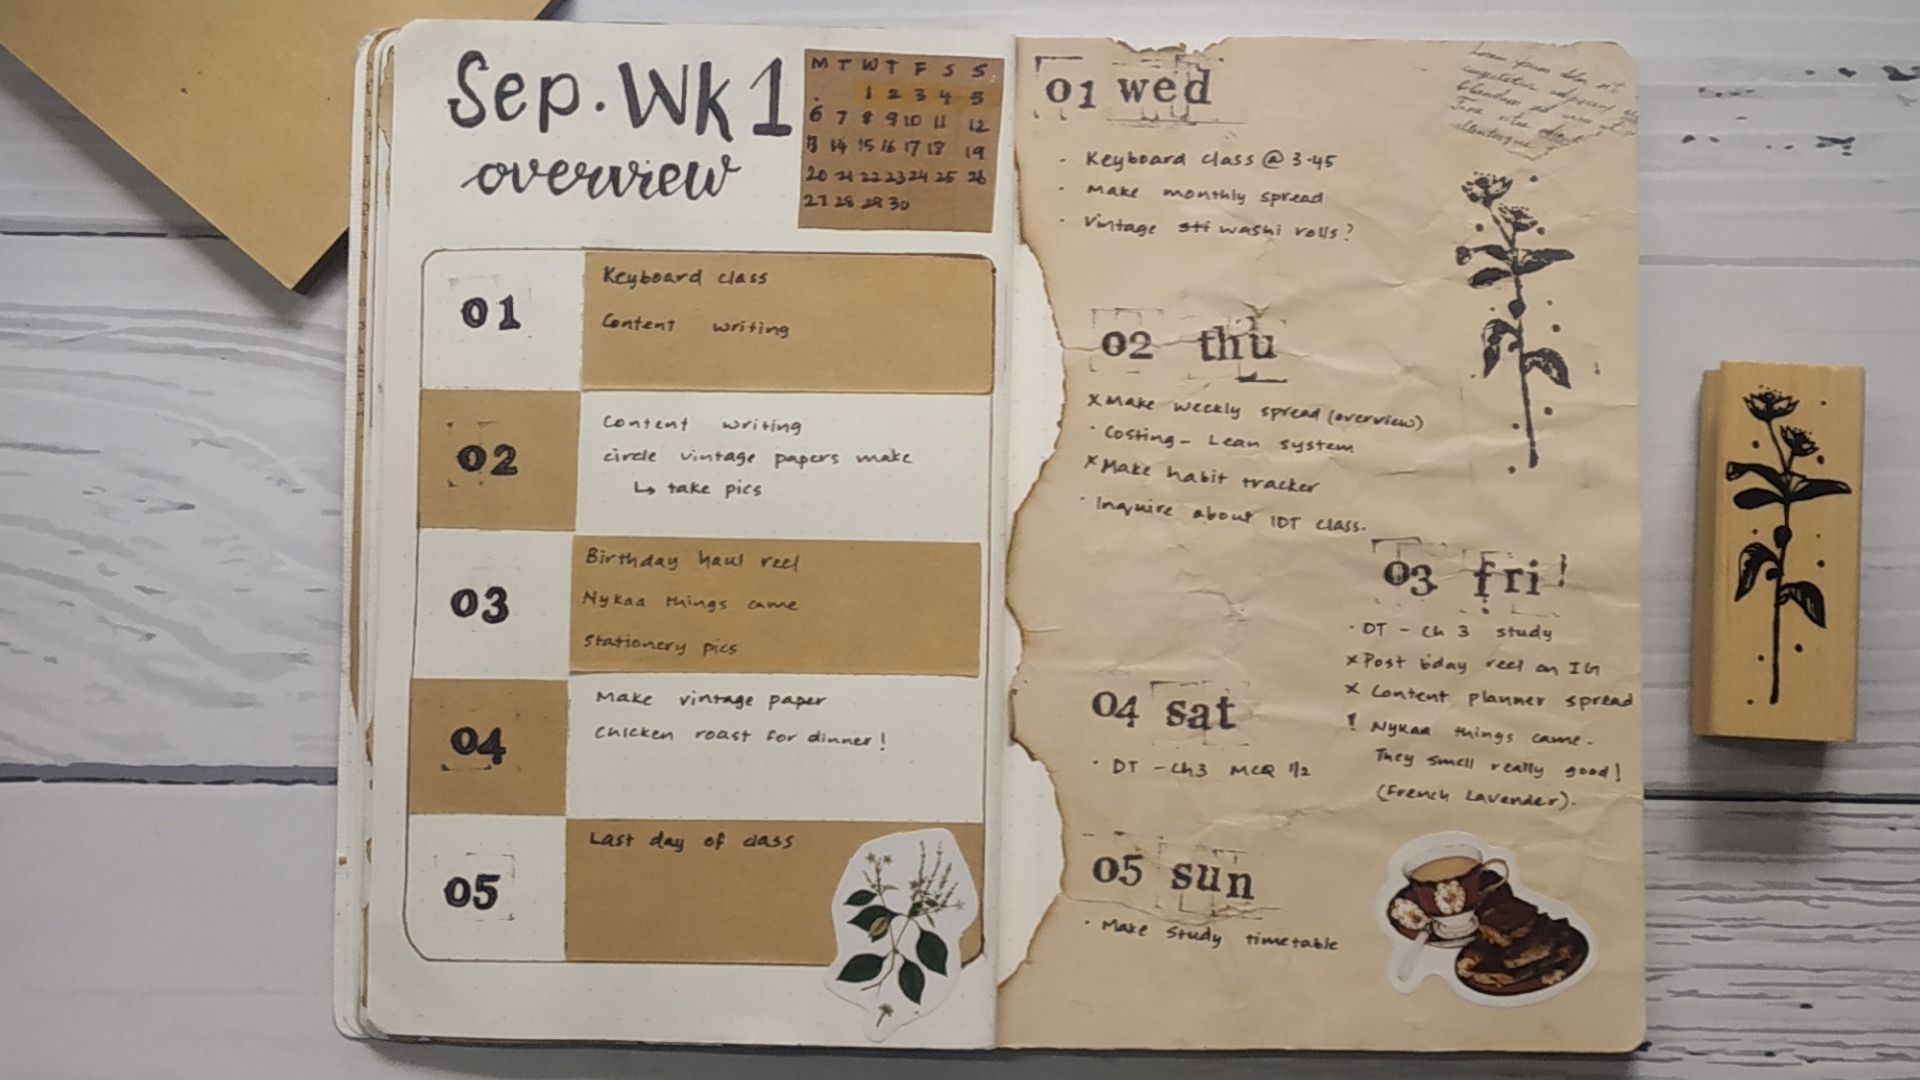 Sep. Wk 1
overview
M T W T F S S
1 2 3 4 5
6 7 8 9 10 11 12
13 14 15 16 17 18 19
20 21 22 23 24 25 26
27 28 29 30
01
Keyboard class
Content writing
02
Content writing
circle vintage papers make
↳ take pics
03
Birthday haul reel
Nykaa things came
Stationery pics
04
Make vintage paper
Chicken roast for dinner!
05
Last day of class
01 wed
· Keyboard class @ 3-45
· Make monthly spread
· Vintage sti washi rolls?
Lorem ipsum dolor sit
consectetur adipiscing
02 thu
x Make weekly spread (overview)
· Costing - Lean system
x Make habit tracker
· Inquire about IDT class.
03 fri!
· DT - Ch 3 study
x Post bday reel on IG
x Content planner spread
! Nykaa things came.
They smell really good!
(French Lavender).
04 sat
· DT - Ch3 MCQ 1/2
05 sun
· Make study timetable